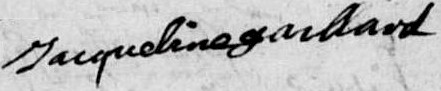 Jacqueline gaillard